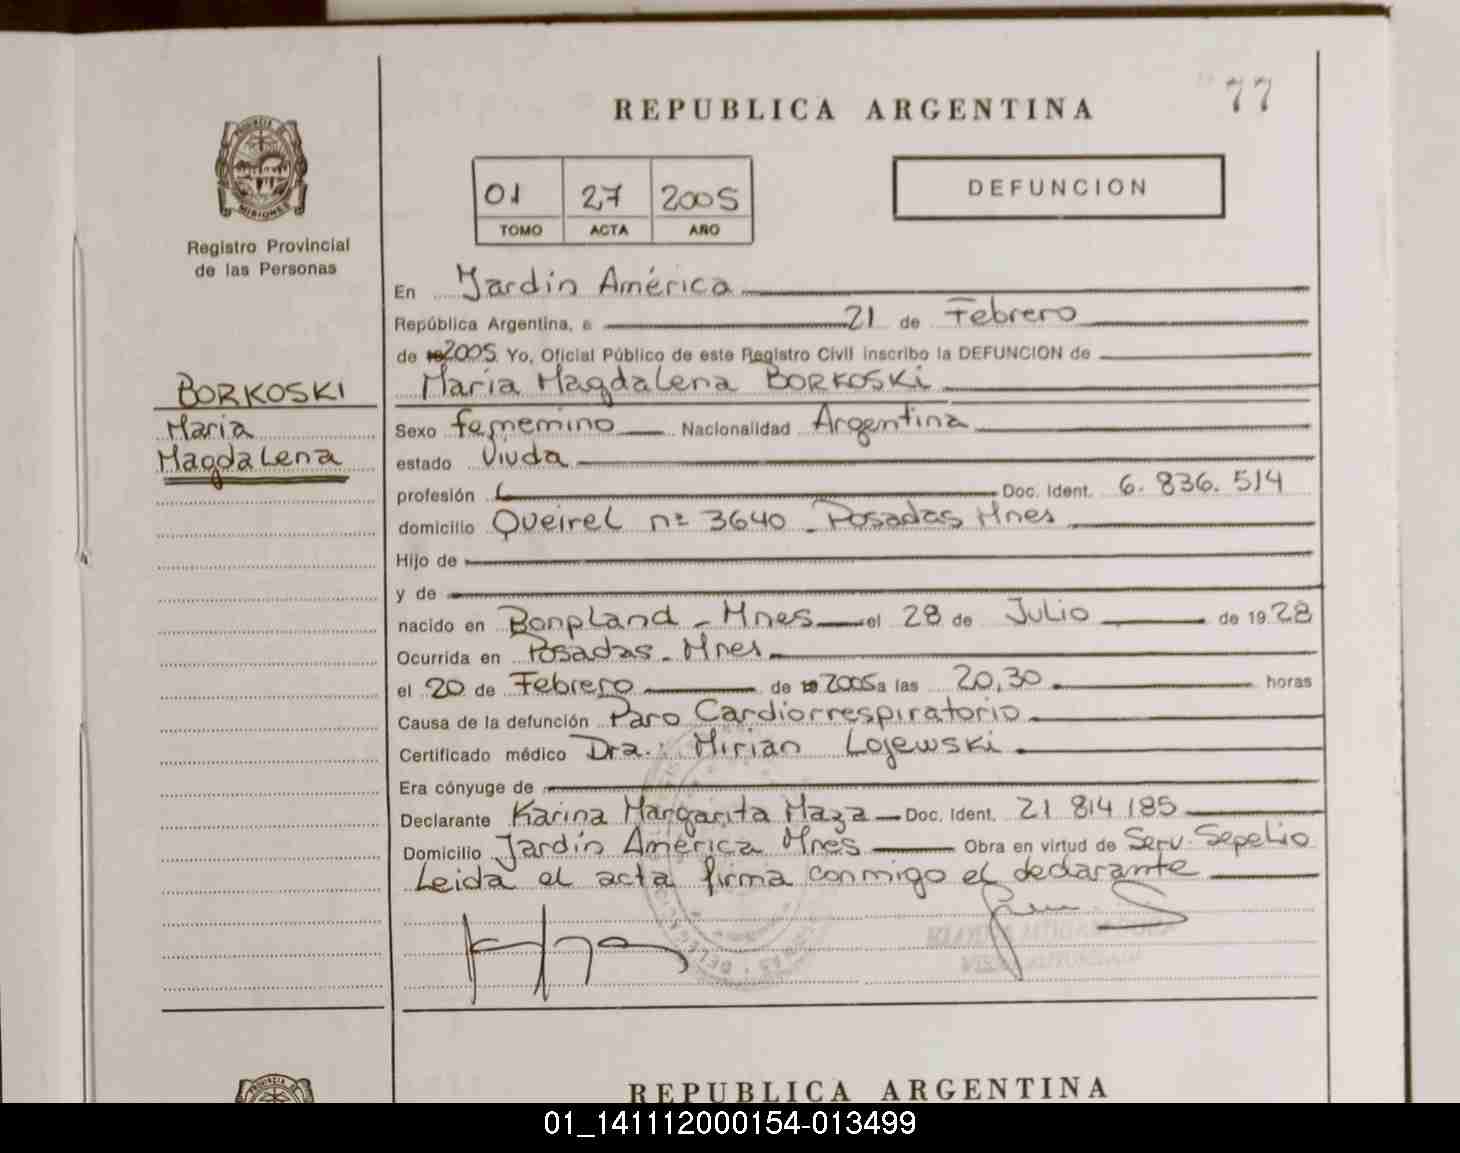 77
REPUBLICA ARGENTINA
PROVINCIA DE
MISIONES
Registro Provincial
de las Personas
01 27 2005
TOMO ACTA AÑO
DEFUNCION
BORKOSKI
Maria
Magdalena
En Jardín América
República Argentina, a 21 de Febrero
de 19 2005 Yo, Oficial Público de este Registro Civil inscribo la DEFUNCION de
María Magdalena BORKOSKI
Sexo femenino Nacionalidad Argentina
estado Viuda
profesión Doc. Ident. 6.836.514
domicilio Queirel nº 3640 - Posadas Mnes
Hijo de
y de
nacido en Bonpland - Mnes el 28 de Julio de 1928
Ocurrida en Posadas - Mnes
el 20 de Febrero de 19 2005 a las 20,30 horas
Causa de la defunción Paro Cardiorrespiratorio
Certificado médico Dra.: Mirian Lojewski
Era cónyuge de
Declarante Karina Margarita Maza Doc. Ident. 21 814 185
Domicilio Jardín América Mnes Obra en virtud de Serv. Sepelio
Leida el acta firma conmigo el declarante
PROVINCIA DE
REPUBLICA ARGENTINA
01_141112000154-013499